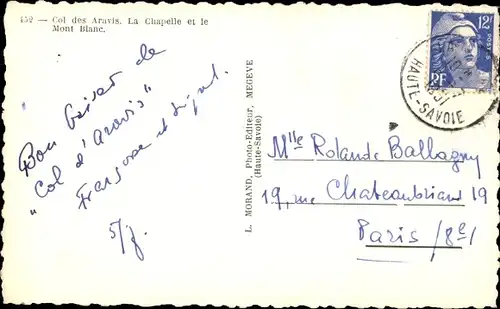 152 — Col des Aravis. La Chapelle et le
Mont Blanc.
Bon baiser de
"Col d'Aravis"
Françoise et
5/8.
L. MORAND, Photo-Editeur, MEGEVE
(Haute-Savoie)
12F
RF
HAUTE-SAVOIE
Mlle Rolande Ballagny
19, rue Chateaubriand 19
Paris (8e)